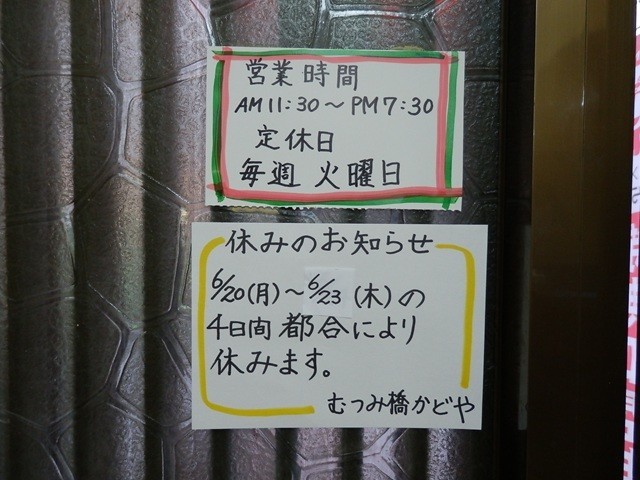 営業時間
AM 11:30～PM 7:30
定休日
毎週 火曜日
休みのお知らせ
6/20(月)～6/23(木)の
4日間 都合により
休みます。
むつみ橋かどや